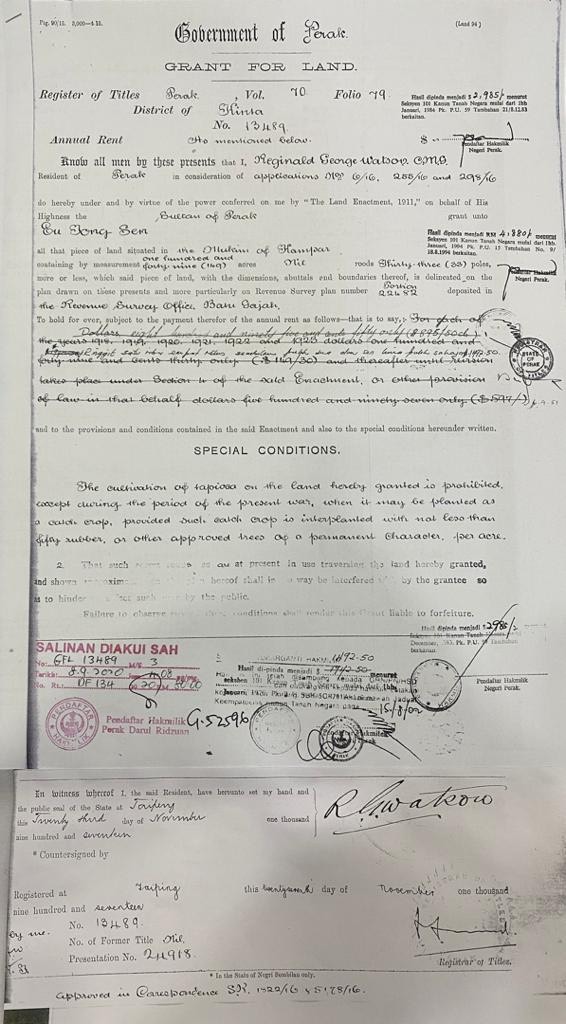 Pag. 90/15. 3,000—4.15. (Land 94)
Government of Perak.
GRANT FOR LAND.
Register of Titles Perak, Vol. 70 Folio 79.
District of Kinta
No. 13489.
Hasil dipinda menjadi $2,985/- menurut
Seksyen 101 Kanun Tanah Negara mulai dari 1hb.
Januari, 1984 Pk. P.U. 59 Tambahan 21/8.12.83
berkaitan.
Annual Rent As mentioned below. $
Pendaftar Hakmilik
Negeri Perak.
Know all men by these presents that I, Reginald George Watson, C.M.G.
Resident of Perak in consideration of applications Nos 6/16, 255/16 and 298/16
do hereby under and by virtue of the power conferred on me by "The Land Enactment, 1911," on behalf of His
Highness the Sultan of Perak grant unto
Eu Tong Sen
Hasil dipinda menjadi RM 4,880/- menurut
Seksyen 101 Kanun Tanah Negara mulai dari 1hb.
Januari, 1994 Pk. P.U. 15 Tambahan No. 9/
18.8.1994 berkaitan.
all that piece of land situated in the Mukim of Kampar
containing by measurement one hundred and
forty-nine (149) acres Nil roods Thirty-three (33) poles,
Pendaftar Hakmilik
Negeri Perak.
more or less, which said piece of land, with the dimensions, abuttals and boundaries thereof, is delineated on the
plan drawn on these presents and more particularly on Revenue Survey plan number Portion 22482 deposited in
the Revenue Survey Office, Batu Gajah.
To hold for ever, subject to the payment therefor of the annual rent as follows—that is to say,: For each of
Dollars eight hundred and ninety five and cents fifty only ($895/50c)
the years 1918, 1919, 1920, 1921, 1922 and 1923 dollars one hundred and
forty-nine and cents thirty only ($149/30) and thereafter until revision
takes place under Section 4 of the said Enactment, or other provision
of law in that behalf dollars five hundred and ninety-seven only ($597/-)
and to the provisions and conditions contained in the said Enactment and also to the special conditions hereunder written.
SPECIAL CONDITIONS.
The cultivation of tapioca on the land hereby granted is prohibited,
except during the period of the present war, when it may be planted as
a catch crop, provided such catch crop is interplanted with not less than
fifty rubber, or other approved trees of a permanent character, per acre.
2. That such as are at present in use traversing the land hereby granted,
and shown hereof shall in no way be interfered with by the grantee so
as to hinder or affect such use by the public.
Failure to observe conditions shall render this Grant liable to forfeiture.
Hasil dipinda menjadi $2985/-
SALINAN DIAKUI SAH
No: GFL 13489 M/S 3
Tarikh: 8.9.2020
No. Rt.: 50.00
PENDAFTAR HAKMILIK
Pendaftar Hakmilik
Perak Darul Ridzuan
G.52596
1492-50
Hasil dipinda menjadi 1942-50 menurut
15/8/02
Pendaftar Hakmilik
Negeri Perak.
REGISTRAR OF TITLES
STATE OF PERAK
In witness whereof I, the said Resident, have hereunto set my hand and
the public seal of the State at Taiping
this Twenty third day of November one thousand
nine hundred and seventeen
R. G. Watson
* Countersigned by
Registered at Taiping this day of November one thousand
nine hundred and seventeen
No. 13489.
No. of Former Title Nil.
Presentation No. 24918.
Registrar of Titles.
* In the State of Negri Sembilan only.
Approved in Correspondence S.K. 1322/16 & 5178/16.